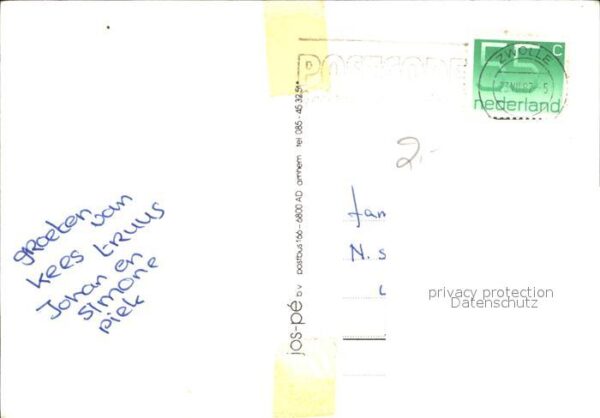 groeten van
kees truus
Johan en
simone
piek
jos-pé b.v. postbus 166 - 6800 AD arnhem tel 085 - 45 32 51
POSTCODE
ZWOLLE
55 c
nederland
2,-
fam
N. s
privacy protection
Datenschutz